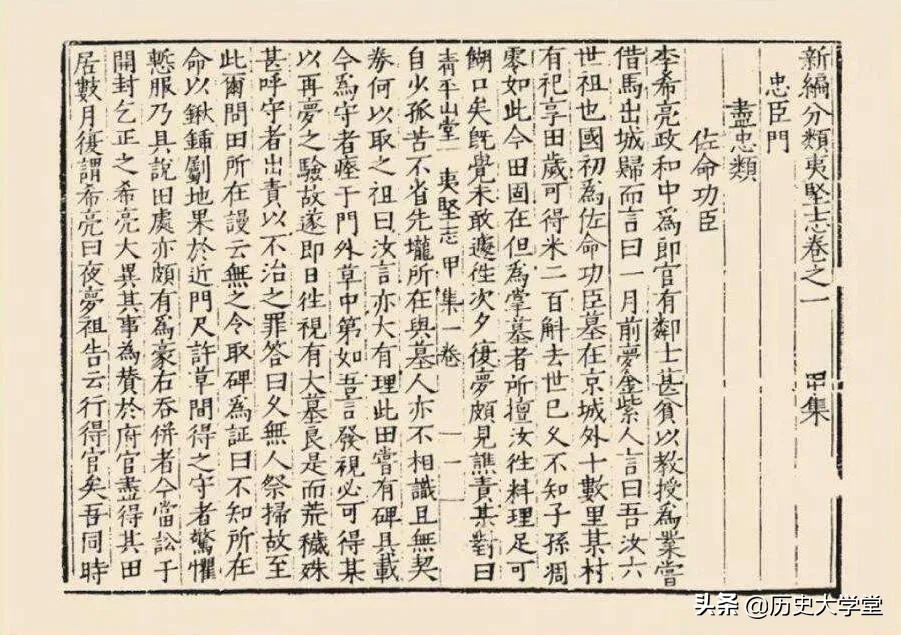 新編分類夷堅志卷之一 甲集
忠臣門
盡忠類
佐命功臣
李希亮政和中爲郎官有鄰士甚貧以教授為業嘗
借馬出城歸而言曰一月前夢金紫人言曰吾汝六
世祖也國初為佐命功臣墓在京城外十數里某村
有祀享田歲可得米二百斛去世已久不知子孫凋
零如此今田固在但為掌墓者所擅汝徃料理足可
餬口矣旣覺未敢遽徃次夕復夢頗見譙責某對曰
清平山堂 夷堅志甲集一卷 一
自少孤苦不省先壠所在與墓人亦不相識且無契
券何以取之祖曰汝言亦大有理此田嘗有碑具載
令爲守者瘞于門外草中第如吾言發視必可得某
以再夢之驗故遂即日徃視有大墓良是而荒穢殊
甚呼守者出責以不治之罪答曰久無人祭掃故至
此爾問田所在謾云無之令取碑爲証曰不知所在
命以鍬鍤劚地果於近門尺許草間得之守者驚懼
慙服乃具說田處亦頗有爲豪右吞併者今當訟于
開封乞正之希亮大異其事為賛於府官盡得其田
居數月復謂希亮曰夜夢祖告云行得官矣吾同時
头条 @历史大学堂